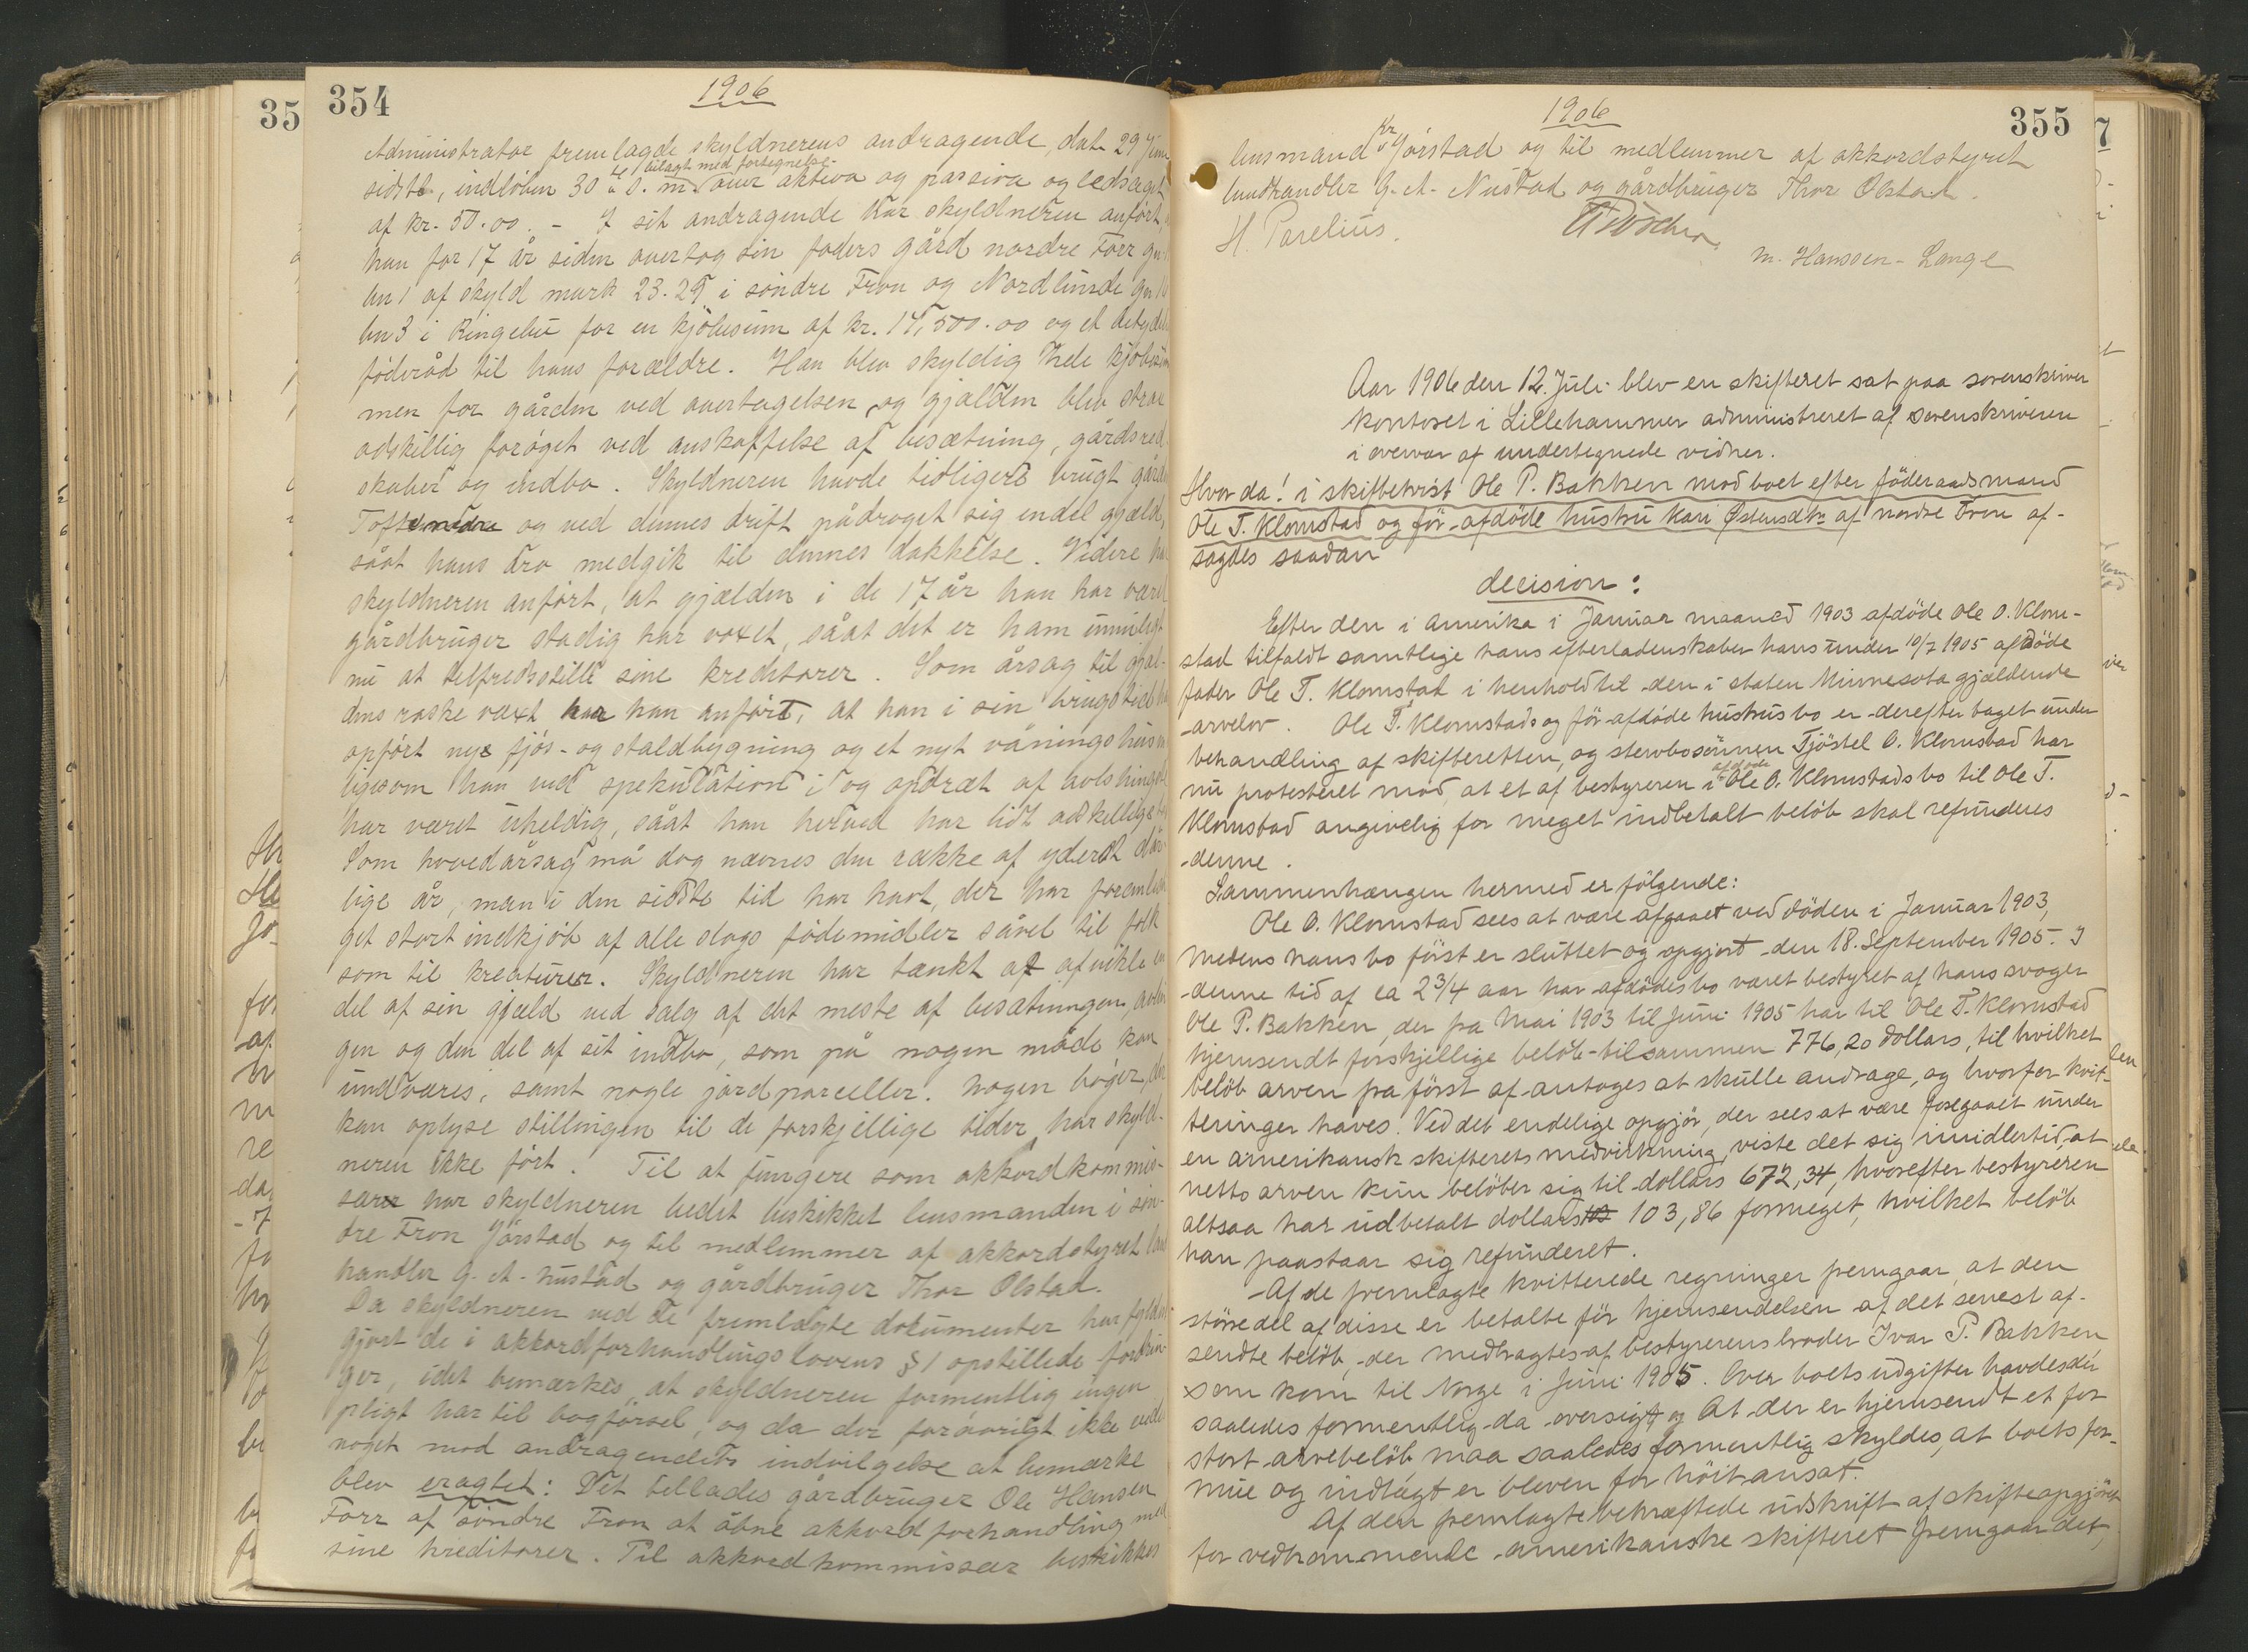 35
354
1906
Administrator fremlagde skyldnerens andragende, dat. 29 Juni
bilagt med fortegnelse
sidstl., indløben 30 s. m. over aktiva og passiva og ledsaget
af kr. 50.00. - I sit andragende har skyldneren anført, 
han for 17 år siden overtog sin faders gård nordre Forr gn
bn 1 af skyld mark 23.29 i søndre Fron og Nordlunde gn
bn 3 i Ringebu for en kjøbesum af kr. 15,500.00 og et betyde
føderåd til hans forældre. Han blev skyldig hele kjøbesum
men for gården ved overtagelsen og gjælden blev strax
adskillig forøget ved anskaffelse af besætning, gårdsred
skaber og indbo. Skyldneren havde tidligere brugt gården
Tofte nedre og ved dennes drift pådraget sig endel gjæld,
såat hans arv medgik til dennes dækkelse. Videre har
skyldneren anført, at gjælden i de 17 år han har været
gårdbruger stadig har voxet, såat det er ham umuligt
nu at tilfredsstille sine kreditorer. Som årsag til gjæl-
dens raske vext har han anført, at han i sin brugstid
opført nye fjøs- og staldbygning og et nyt våningshus
ligesom han ved spekulation i og opdræt af avlshingste
har været uheldig, såat han herved har lidt adskillige
Som hovedårsag må dog nævnes den række af yderst dår-
lige år, man i den sidste tid har havt, der har foranledi
get stort indkjøb af alle slags fødemidler såvel til folk
som til kreaturer. Skyldneren har tænkt at afvikle en
del af sin gjæld ved salg af det meste af besætningen, avlin
gen og den del af sit indbo, som på nogen måde kan
undværes, samt nogle jordparceller. Nogen bøger, der
kan oplyse stillingen til de forskjellige tider har skyld-
neren ikke ført. Til at fungere som akkordkommis-
sær har skyldneren bedet beskikket lensmanden i søn-
dre Fron Jørstad og til medlemmer af akkordstyret land
handler G. A. Nustad og gårdbruger Thor Olstad.
Da skyldneren ved de fremlagte dokumenter har fyldest
gjort de i akkordforhandlingslovens § 1 opstillede fordrin-
ger, idet bemærkes, at skyldneren formentlig ingen
pligt har til bogførsel, og da der forøvrigt ikke vides
noget mod andragendets indvilgelse at bemærke
blev eragtet: Det tillades gårdbruger Ole Hansen
Forr af søndre Fron at åbne akkordforhandling med
sine kreditorer. Til akkordkommissær beskikkes
1906
355
7
lensmand Kr. Jørstad og til medlemmer af akkordstyret
landhandler G. A. Nustad og gårdbruger Thor Olstad.
H. Parelius.
M. Hanssen-Lange
Aar 1906 den 12. Juli blev en skifteret sat paa sorenskriver
kontoret i Lillehammer administreret af sorenskriveren
i overvær af undertegnede vidner.
Hvor da! i skiftetvist Ole P. Bakken mod boet efter föderaadsmand
Ole T. Klomstad og før afdøde hustru Kari Østensdtr af nordre Fron af-
sagdes saadan
decision:
Efter den i Amerika i Januar maaned 1903 afdöde Ole O. Klom-
stad tilfaldt samtlige hans efterladenskaber hans under 10/7 1905 afdöde
fader Ole T. Klomstad i henhold til den i staten Minnesota gjældende
arvelov. Ole T. Klomstads og för afdöde hustrus bo er derefter taget under
behandling af skifteretten, og stervbosönnen Tjöstel O. Klomstad har
afdøde
nu protesteret mod, at et af bestyreren i Ole O. Klomstads bo til Ole T.
Klomstad angivelig for meget indbetalt belöb skal refunderes
denne.
Sammenhængen hermed er fölgende:
Ole O. Klomstad sees at være afgaaet ved döden i Januar 1903,
medens hans bo först er sluttet og opgjort den 18. September 1905. I
denne tid af ca 2 3/4 aar har afdödes bo været bestyret af hans svoger
Ole P. Bakken, der fra Mai 1903 til Juni 1905 har til Ole T. Klomstad
hjemsendt forskjellige belöb - tilsammen 776,20 dollars, til hvilket
belöb arven fra först af antages at skulle andrage, og hvorfor kvit-
teringer haves. Ved det endelige opgjör, der sees at være foregaaet under
en amerikansk skifterets medvirkning, viste det sig imidlertid, at
netto arven kun belöber sig til dollars 672,34, hvorefter bestyreren
altsaa har udbetalt dollars 103,86 formeget, hvilket belöb
han paastaar sig refunderet.
Af de fremlagte kvitterede regninger fremgaar, at den
större del af disse er betalte för hjemsendelsen af det senest af-
sendte belöb, der medbragtes af bestyrerens broder Ivar P. Bakken
som kom til Norge i Juni 1905. Over boets udgifter havdes der
saaledes formentlig da oversigt, og At der er hjemsendt et for
stort arvebelöb maa saaledes formentlig skyldes, at boets for-
mue og indtægt er bleven for höit ansat.
Af den fremlagte bekræftede udskrift af skifteopgjöret
for vedkommende amerikanske skifteret fremgaar det,